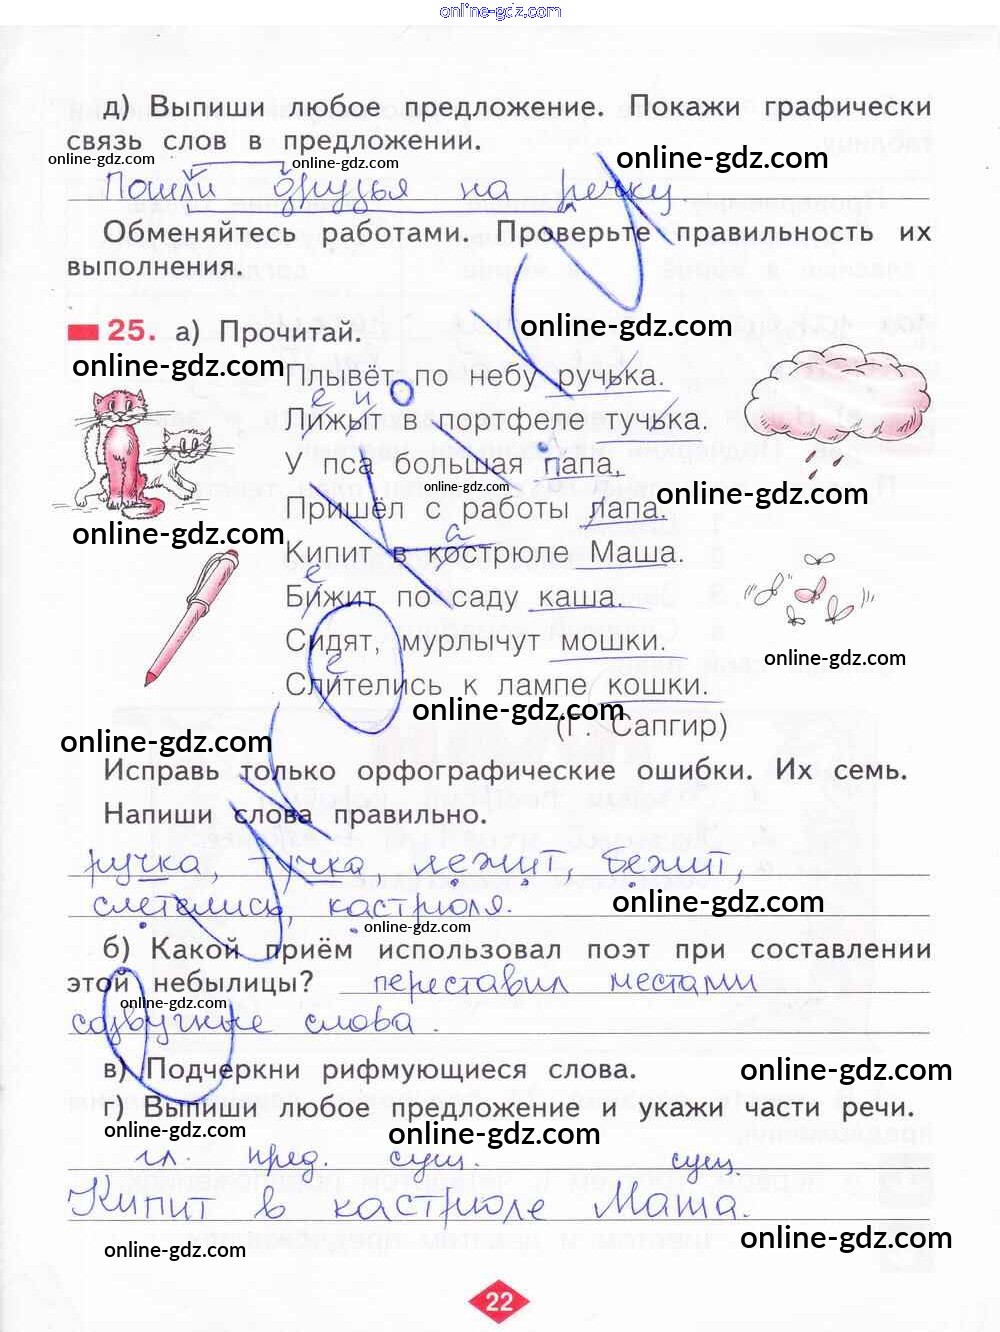 online-gdz.com
д) Выпиши любое предложение. Покажи графически
связь слов в предложении.
online-gdz.com online-gdz.com online-gdz.com
Пошли друзья на речку
Обменяйтесь работами. Проверьте правильность их
выполнения.
25. а) Прочитай.
online-gdz.com
online-gdz.com
Плывёт по небу ручька.
е и
Лижыт в портфеле тучька.
У пса большая папа.
online-gdz.com
online-gdz.com
Пришёл с работы лапа.
online-gdz.com
а
Кипит в кострюле Маша.
е
Бижит по саду каша.
Сидят, мурлычут мошки.
online-gdz.com
е
Слителись к лампе кошки.
online-gdz.com
(Г. Сапгир)
online-gdz.com
Исправь только орфографические ошибки. Их семь.
Напиши слова правильно.
ручка, тучка, лежит, бежит,
слетелись, кастрюля.
online-gdz.com
online-gdz.com
б) Какой приём использовал поэт при составлении
этой небылицы? переставил местами
online-gdz.com
созвучные слова.
в) Подчеркни рифмующиеся слова.
online-gdz.com
г) Выпиши любое предложение и укажи части речи.
online-gdz.com
гл. пред. сущ. сущ.
Кипит в кастрюле Маша.
online-gdz.com
online-gdz.com
22